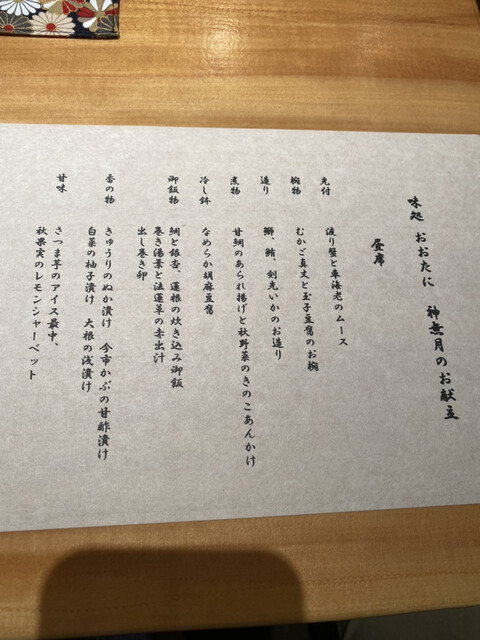 味処 おおたに 神無月のお献立
昼席
先付
渡り蟹と車海老のムース
椀物
むかご真丈と玉子豆腐のお椀
造り
鰤、鮪、剣先いかのお造り
煮物
甘鯛のあられ揚げと秋野菜のきのこあんかけ
冷し鉢
なめらか胡麻豆腐
御飯物
鯛と銀杏、蓮根の炊き込み御飯
巻き湯葉と法蓮草の赤出汁
出し巻き卵
香の物
きゅうりのぬか漬け 今市かぶの甘酢漬け
白菜の柚子漬け 大根の浅漬け
甘味
さつま芋のアイス最中、
秋果実のレモンシャーベット